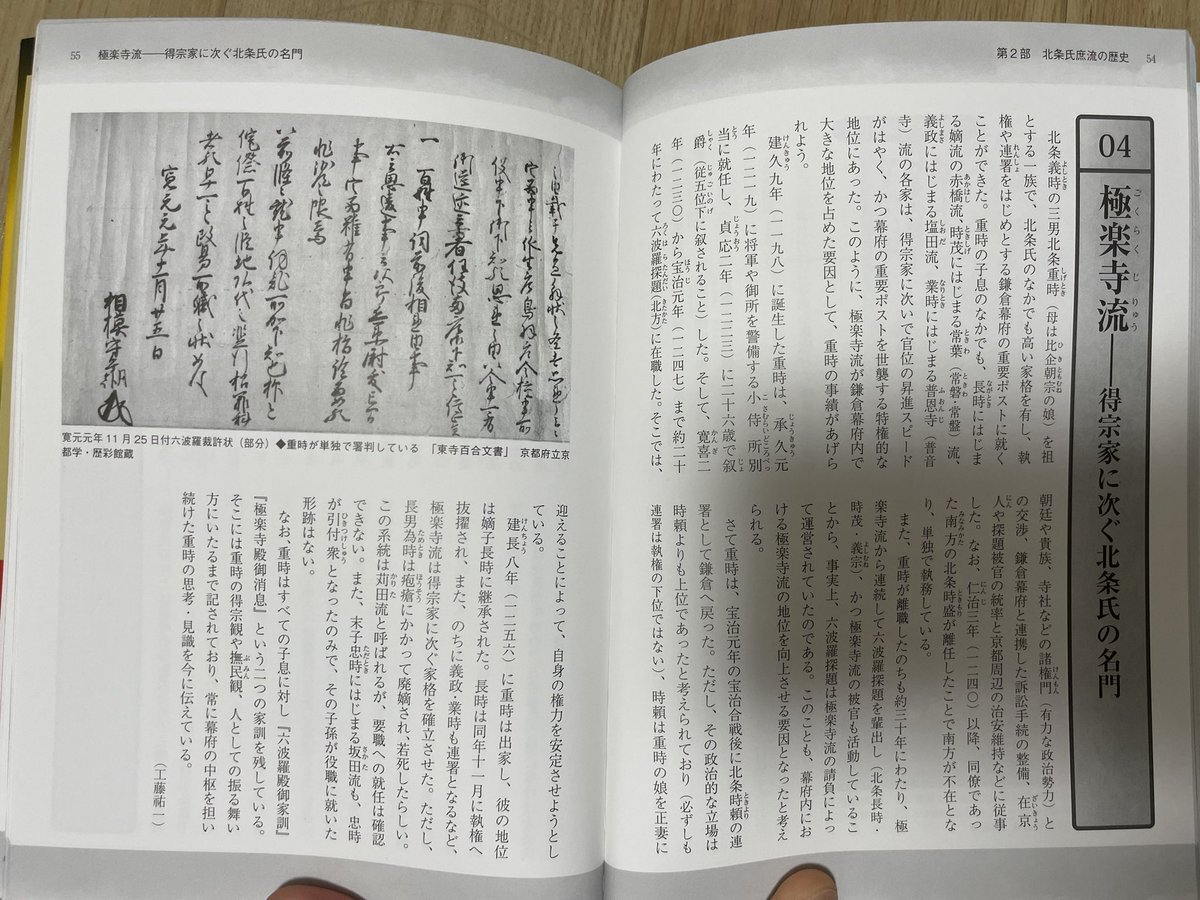 第2部　北条氏庶流の歴史　54
04
極楽寺流――得宗家に次ぐ北条氏の名門
北条義時の三男北条重時（母は比企朝宗の娘）を祖
とする一族で、北条氏のなかでも高い家格を有し、執
権や連署をはじめとする鎌倉幕府の重要ポストに就く
ことができた。重時の子息のなかでも、長時にはじま
る嫡流の赤橋流、時茂にはじまる常葉（常磐・常盤）流、
義政にはじまる塩田流、業時にはじまる普恩寺（普音
寺）流の各家は、得宗家に次いで官位の昇進スピード
がはやく、かつ幕府の重要ポストを世襲する特権的な
地位にあった。このように、極楽寺流が鎌倉幕府内で
大きな地位を占めた要因として、重時の事績があげら
れよう。
建久九年（一一九八）に誕生した重時は、承久元
年（一二一九）に将軍や御所を警備する小侍所別
当に就任し、貞応二年（一二二三）に二十六歳で叙
爵（従五位下に叙されること）した。そして、寛喜二
年（一二三〇）から宝治元年（一二四七）まで約二十
年にわたって六波羅探題（北方）に在職した。そこでは、
朝廷や貴族、寺社などの諸権門（有力な政治勢力）と
の交渉、鎌倉幕府と連携した訴訟手続の整備、在京
人や探題被官の統率と京都周辺の治安維持などに従事
した。なお、仁治三年（一二四〇）以降、同僚であっ
た南方の北条時盛が離任したことで南方が不在とな
り、単独で執務している。
また、重時が離職したのちも約三十年にわたり、極
楽寺流から連続して六波羅探題を輩出し（北条長時・
時茂・義宗）、かつ極楽寺流の被官も活動しているこ
とから、事実上、六波羅探題は極楽寺流の請負によっ
て運営されていたのである。このことも、幕府内にお
ける極楽寺流の地位を向上させる要因となったと考え
られる。
さて重時は、宝治元年の宝治合戦後に北条時頼の連
署として鎌倉へ戻った。ただし、その政治的な立場は
時頼よりも上位であったと考えられており（必ずしも
連署は執権の下位ではない）、時頼は重時の娘を正妻に
55　極楽寺流――得宗家に次ぐ北条氏の名門
寛元元年11月25日付六波羅裁許状（部分）◆重時が単独で署判している　「東寺百合文書」　京都府立京
都学・歴彩館蔵
迎えることによって、自身の権力を安定させようとし
ている。
建長八年（一二五六）に重時は出家し、彼の地位
は嫡子長時に継承された。長時は同年十一月に執権へ
抜擢され、また、のちに義政・業時も連署となるなど、
極楽寺流は得宗家に次ぐ家格を確立させた。ただし、
長男為時は疱瘡にかかって廃嫡され、若死したらしい。
この系統は苅田流と呼ばれるが、要職への就任は確認
できない。また、末子忠時にはじまる坂田流も、忠時
が引付衆となったのみで、その子孫が役職に就いた
形跡はない。
なお、重時はすべての子息に対し『六波羅殿御家訓』
『極楽寺殿御消息』という二つの家訓を残している。
そこには重時の得宗観や撫民観、人としての振る舞い
方にいたるまで記されており、常に幕府の中枢を担い
続けた重時の思考・見識を今に伝えている。
（工藤祐一）